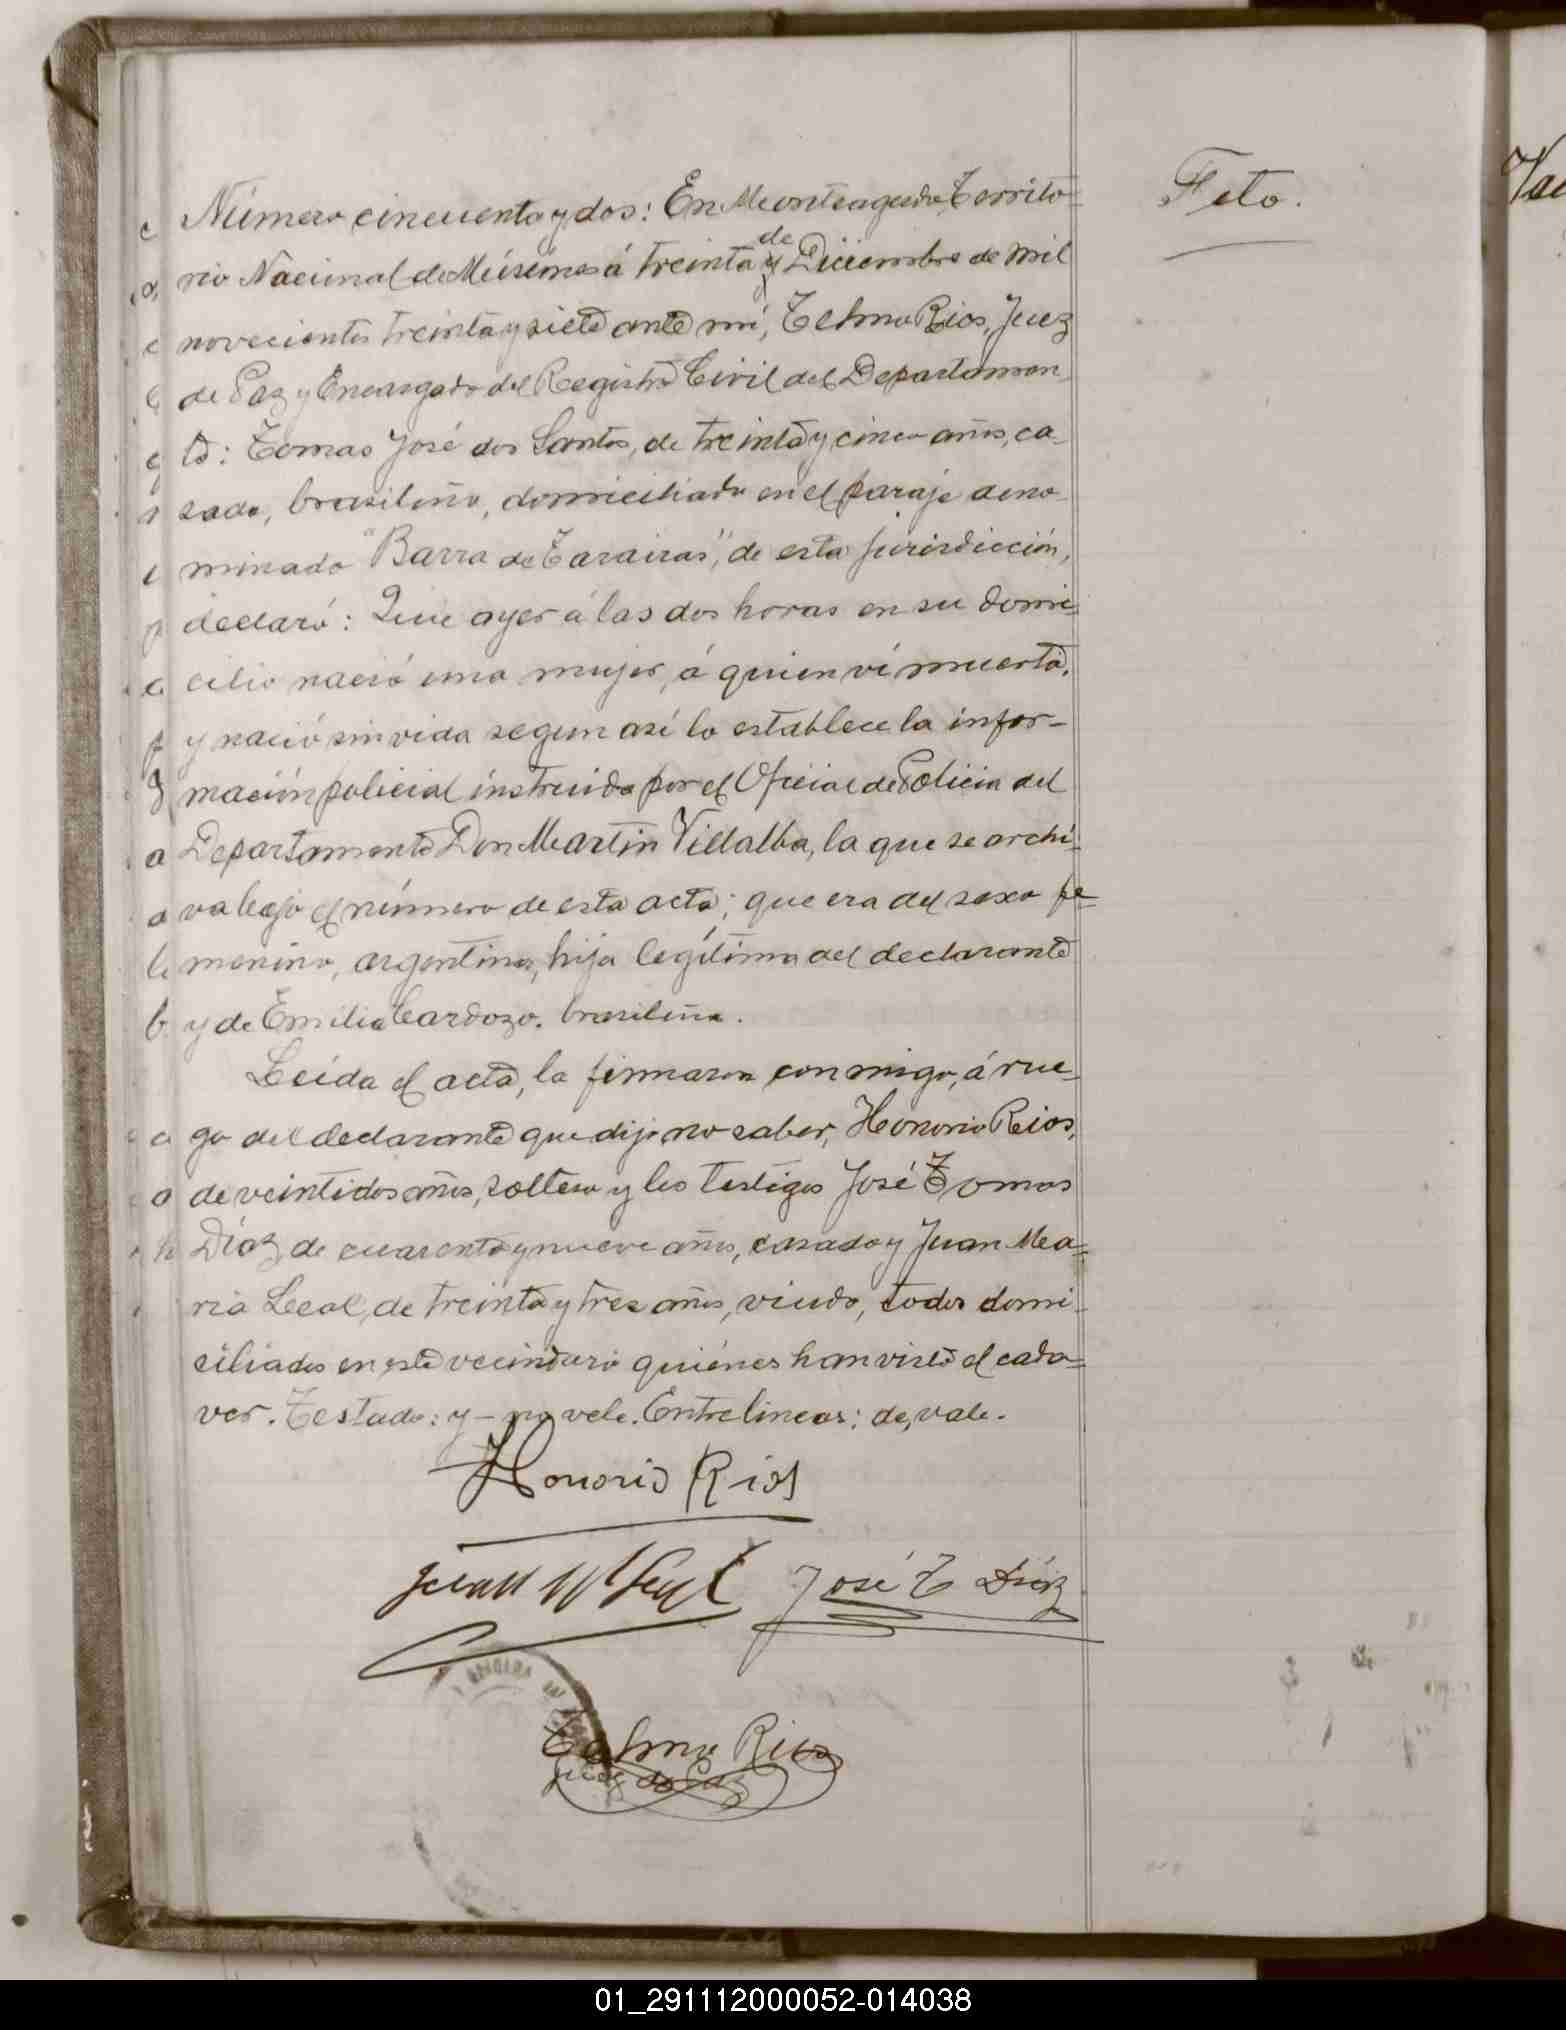 Feto.
Número cincuenta y dos: En Monteagudo Territo
rio Nacional de Misiones á treinta y de Diciembre de mil
novecientos treinta y siete ante mí, Telmo Rios, Juez
de Paz y Encargado del Registro Civil del Departamen
to: Tomas José dos Santos, de treinta y cinco años, ca-
sado, brasileño, domiciliado en el paraje deno-
minado "Barra de Tarairas", de esta jurisdicción,
declaró: Que ayer á las dos horas en su domi-
cilio nació una mujer, á quien ví muerta,
y nació sin vida segun así lo establece la infor-
mación policial instruida por el Oficial de Policia del
Departamento Don Martin Villalba, la que se archi-
va bajo el número de esta acta; que era del sexo fe-
menino, argentina, hija legítima del declarante
y de Emilia Cardozo. brasileña.
Leída el acta, la firmaron conmigo, á rue-
go del declarante que dijo no saber, Honorio Rios,
de veintidos años, soltero y los testigos José Tomas
Díaz de cuarenta y nueve años, casado y Juan Ma-
ria Leal, de treinta y tres años, viudo, todos domi-
ciliados en este vecindario quiénes han visto el cada-
ver. Testado: y – no vale. Entrelineas: de, vale.
Honorio Rios
Juan M Leal José T Díaz
Telmo Rios
Juez de Paz
01_291112000052-014038